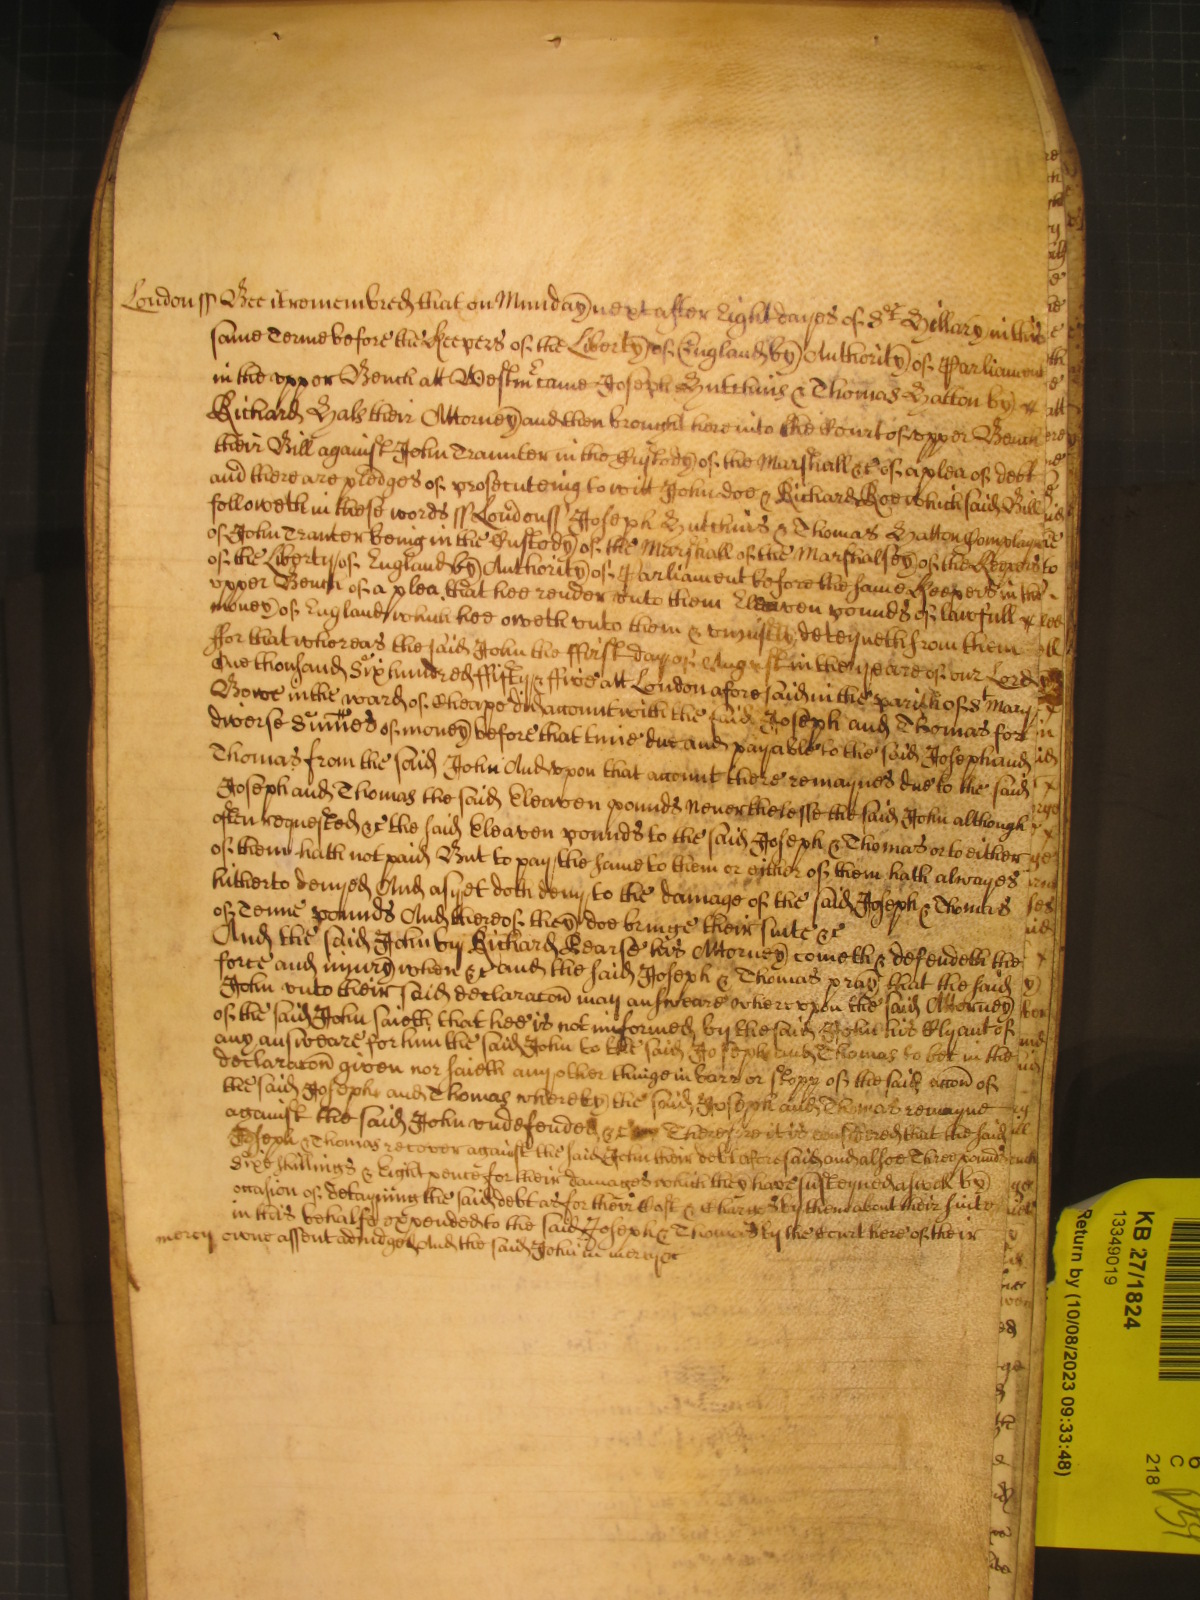 London ss Bee it remembred that on Munday next after Eight dayes of St Hillary in this
same Terme before the Keepers of the Liberty of England by Authority of Parliament
in the upper Bench att Westmr came Joseph Hutchins & Thomas Hatton by
Richard Hals their Attorney and then brought here into the Court of upper Bench
their Bill against John Traunter in the Custody of the Marshall &c of a plea of debt
and there are pledges of prosecuteing to witt John doe & Richard Roe which said Bill
followeth in these words ss London ss Joseph Hutchins & Thomas Hatton Complayne
of John Tranter being in the Custody of the Marshall of the Marshalsey of the Keepers
of the Liberty of England by Authority of Parliament before the same Keepers in the
upper Bench of a plea that hee render unto them Eleaven pounds of lawfull
money of England which hee oweth unto them & unjustly deteyneth from them
ffor that whereas the said John the ffirst day of August in the yeare of our Lord
One thousand Six hundred ffifty & ffive att London aforesaid in the parish of St Mary
Bowe in the ward of Cheape did account with the said Joseph and Thomas for
diverse Summes of money before that time due and payable to the said Joseph and
Thomas from the said John And upon that account there remaynes due to the said
Joseph and Thomas the said Eleaven pounds Neverthelesse the said John although
often requested &c the said Eleaven pounds to the said Joseph & Thomas or to either
of them hath not paid But to pay the same to them or either of them hath alwayes
hitherto denyed And as yet doth deny to the damage of the said Joseph & Thomas
of Tenne pounds And thereof they doe bringe their suite &c
And the said John by Richard Bearse his Attorney cometh & defendeth the
force and injury when &c and the said Joseph & Thomas pray that the said
John unto their said declaracon may answeare Whereupon the said Attorney
of the said John saieth that hee is not informed by the said John his Clyant of
any answeare for him the said John to the said Joseph and Thomas to bee in the
declaracon given nor saieth any other thinge in barr or stopp of the said accon of
the said Joseph and Thomas whereby the said Joseph and Thomas remayne
against the said John undefended &c Therefore it is considered that the said
Joseph & Thomas recover against the said John their debt aforesaid and alsoe Three pounds
Sixe shillings & Eight pence for their damages which they have susteyned aswell by
occasion of detayning the said debt as for their Cost & Charges by them about their suite
in this behalfe expended to the said Joseph & Thomas by the Court here of their
mercy owne assent adiudged And the said John in mercy &c
KB 27/1824
13349019
Return by (10/08/2023 09:33:48)
6
C
218